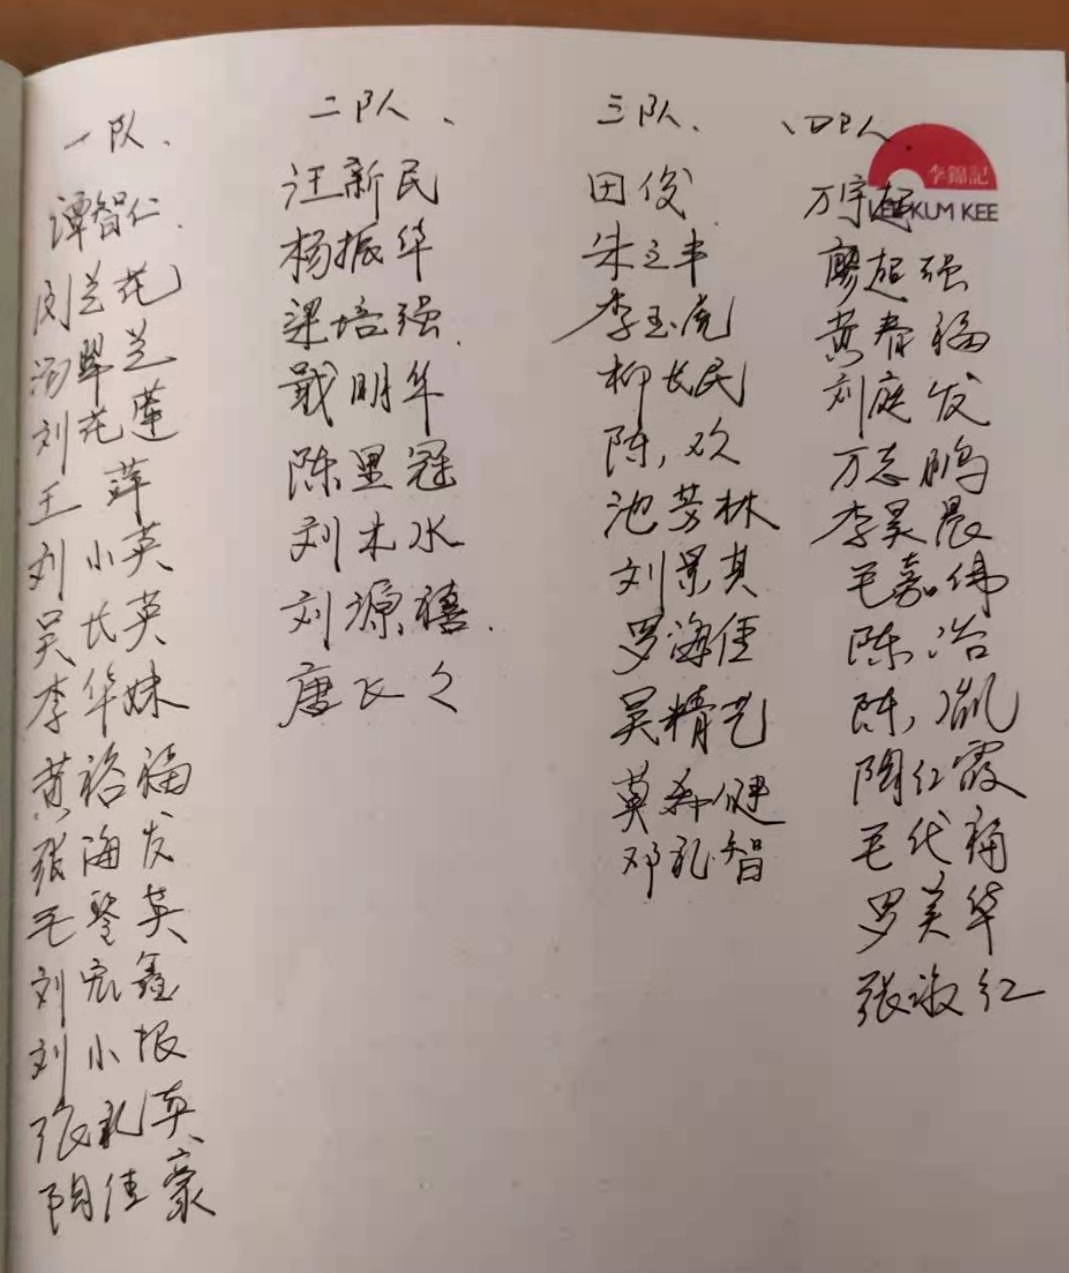 一队、
谭智仁
刘兰花
汤翠兰
刘花莲
王萍
刘小英
吴长英
李华妹
黄裕福
张海发
毛琴英
刘宏鑫
刘小根
张礼英
陶佳豪
二队、
汪新民
杨振华
梁培强
戴明华
陈里冠
刘木水
刘源禧
唐长久
三队、
田俊
朱立丰
李玉虎
柳长民
陈欢
池芳林
刘景其
罗海佳
吴精艺
莫健
邓礼智
四队
万宇超
廖超强
黄春福
刘庭发
万志鹏
李昊晨
毛嘉伟
陈冶
陈凯
陶红霞
毛代福
罗美华
张淑红
李錦記
LEE KUM KEE